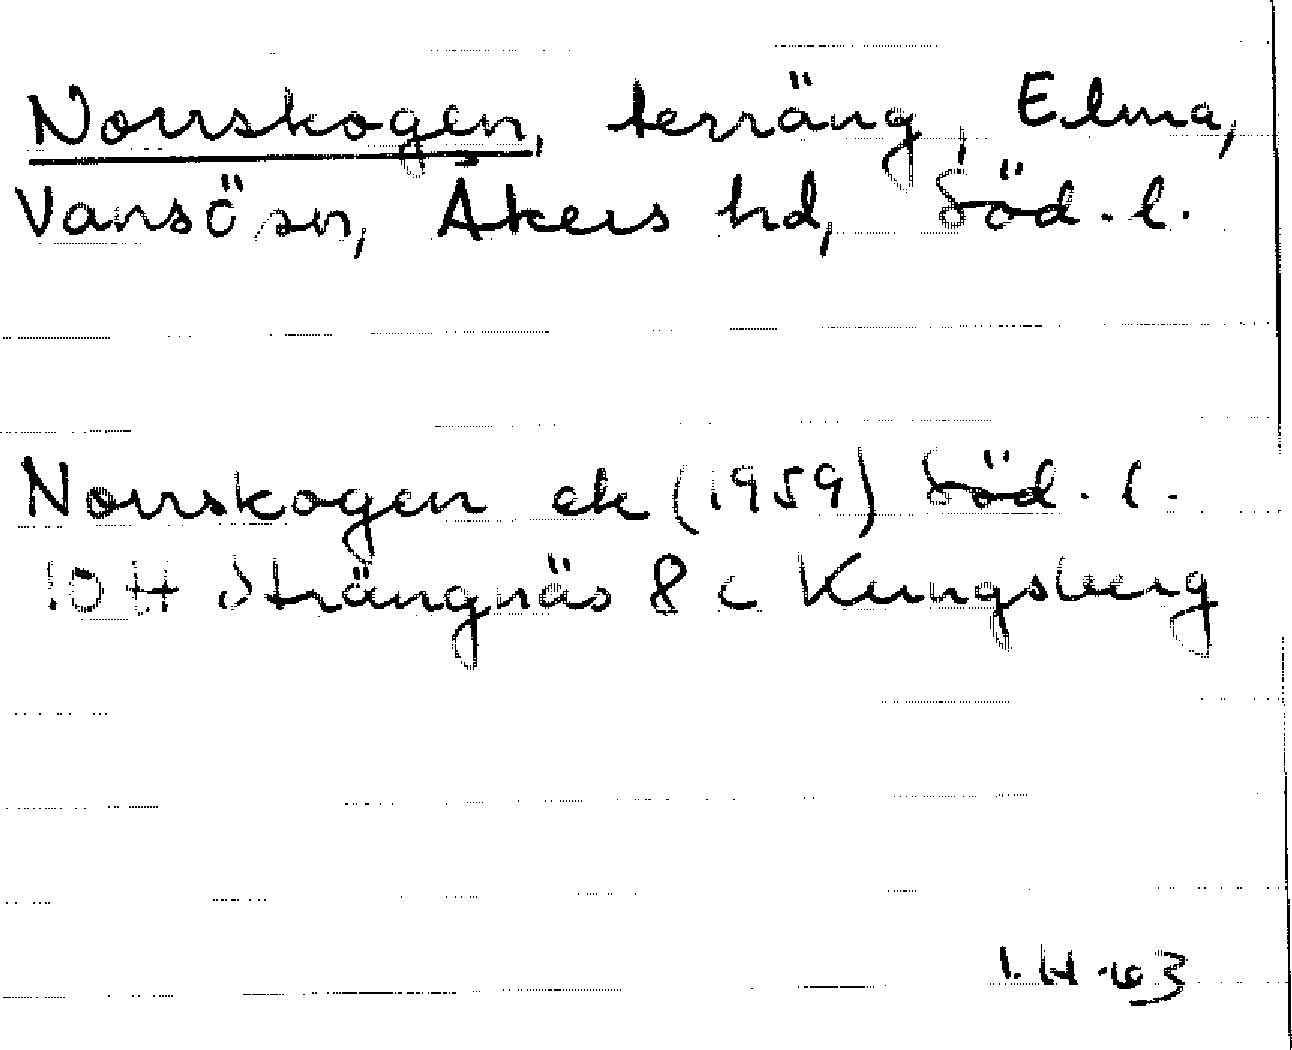 Norrskogen, terräng, Elma,
Vansö sn, Åkers hd, Söd. l.
Norrskogen ek (1959) Söd. l.
10 H Strängnäs 8 c Kungsberg
I. H -63